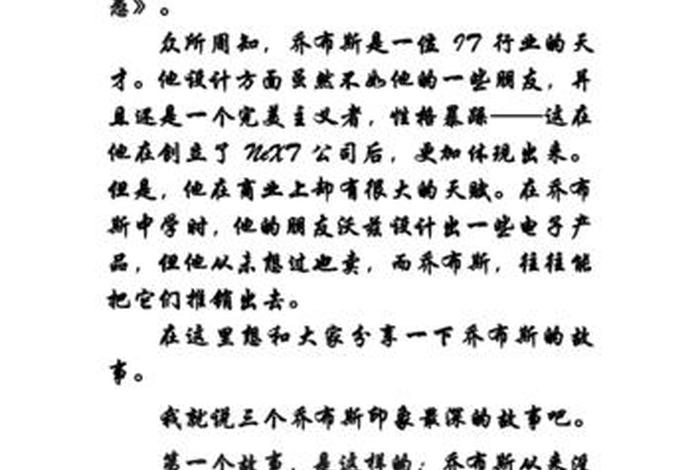 惑》。
众所周知，乔布斯是一位 IT 行业的天
才。他设计方面虽然不如他的一些朋友，并
且还是一个完美主义者，性格暴躁——这在
他在创立了 NeXT 公司后，更加体现出来。
但是，他在商业上却有很大的天赋。在乔布
斯中学时，他的朋友沃兹设计出一些电子产
品，但他从未想过出卖，而乔布斯，往往能
把它们推销出去。
在这里想和大家分享一下乔布斯的故
事。
我就说三个乔布斯印象最深的故事吧。
第一个故事，是这样的：乔布斯从来没